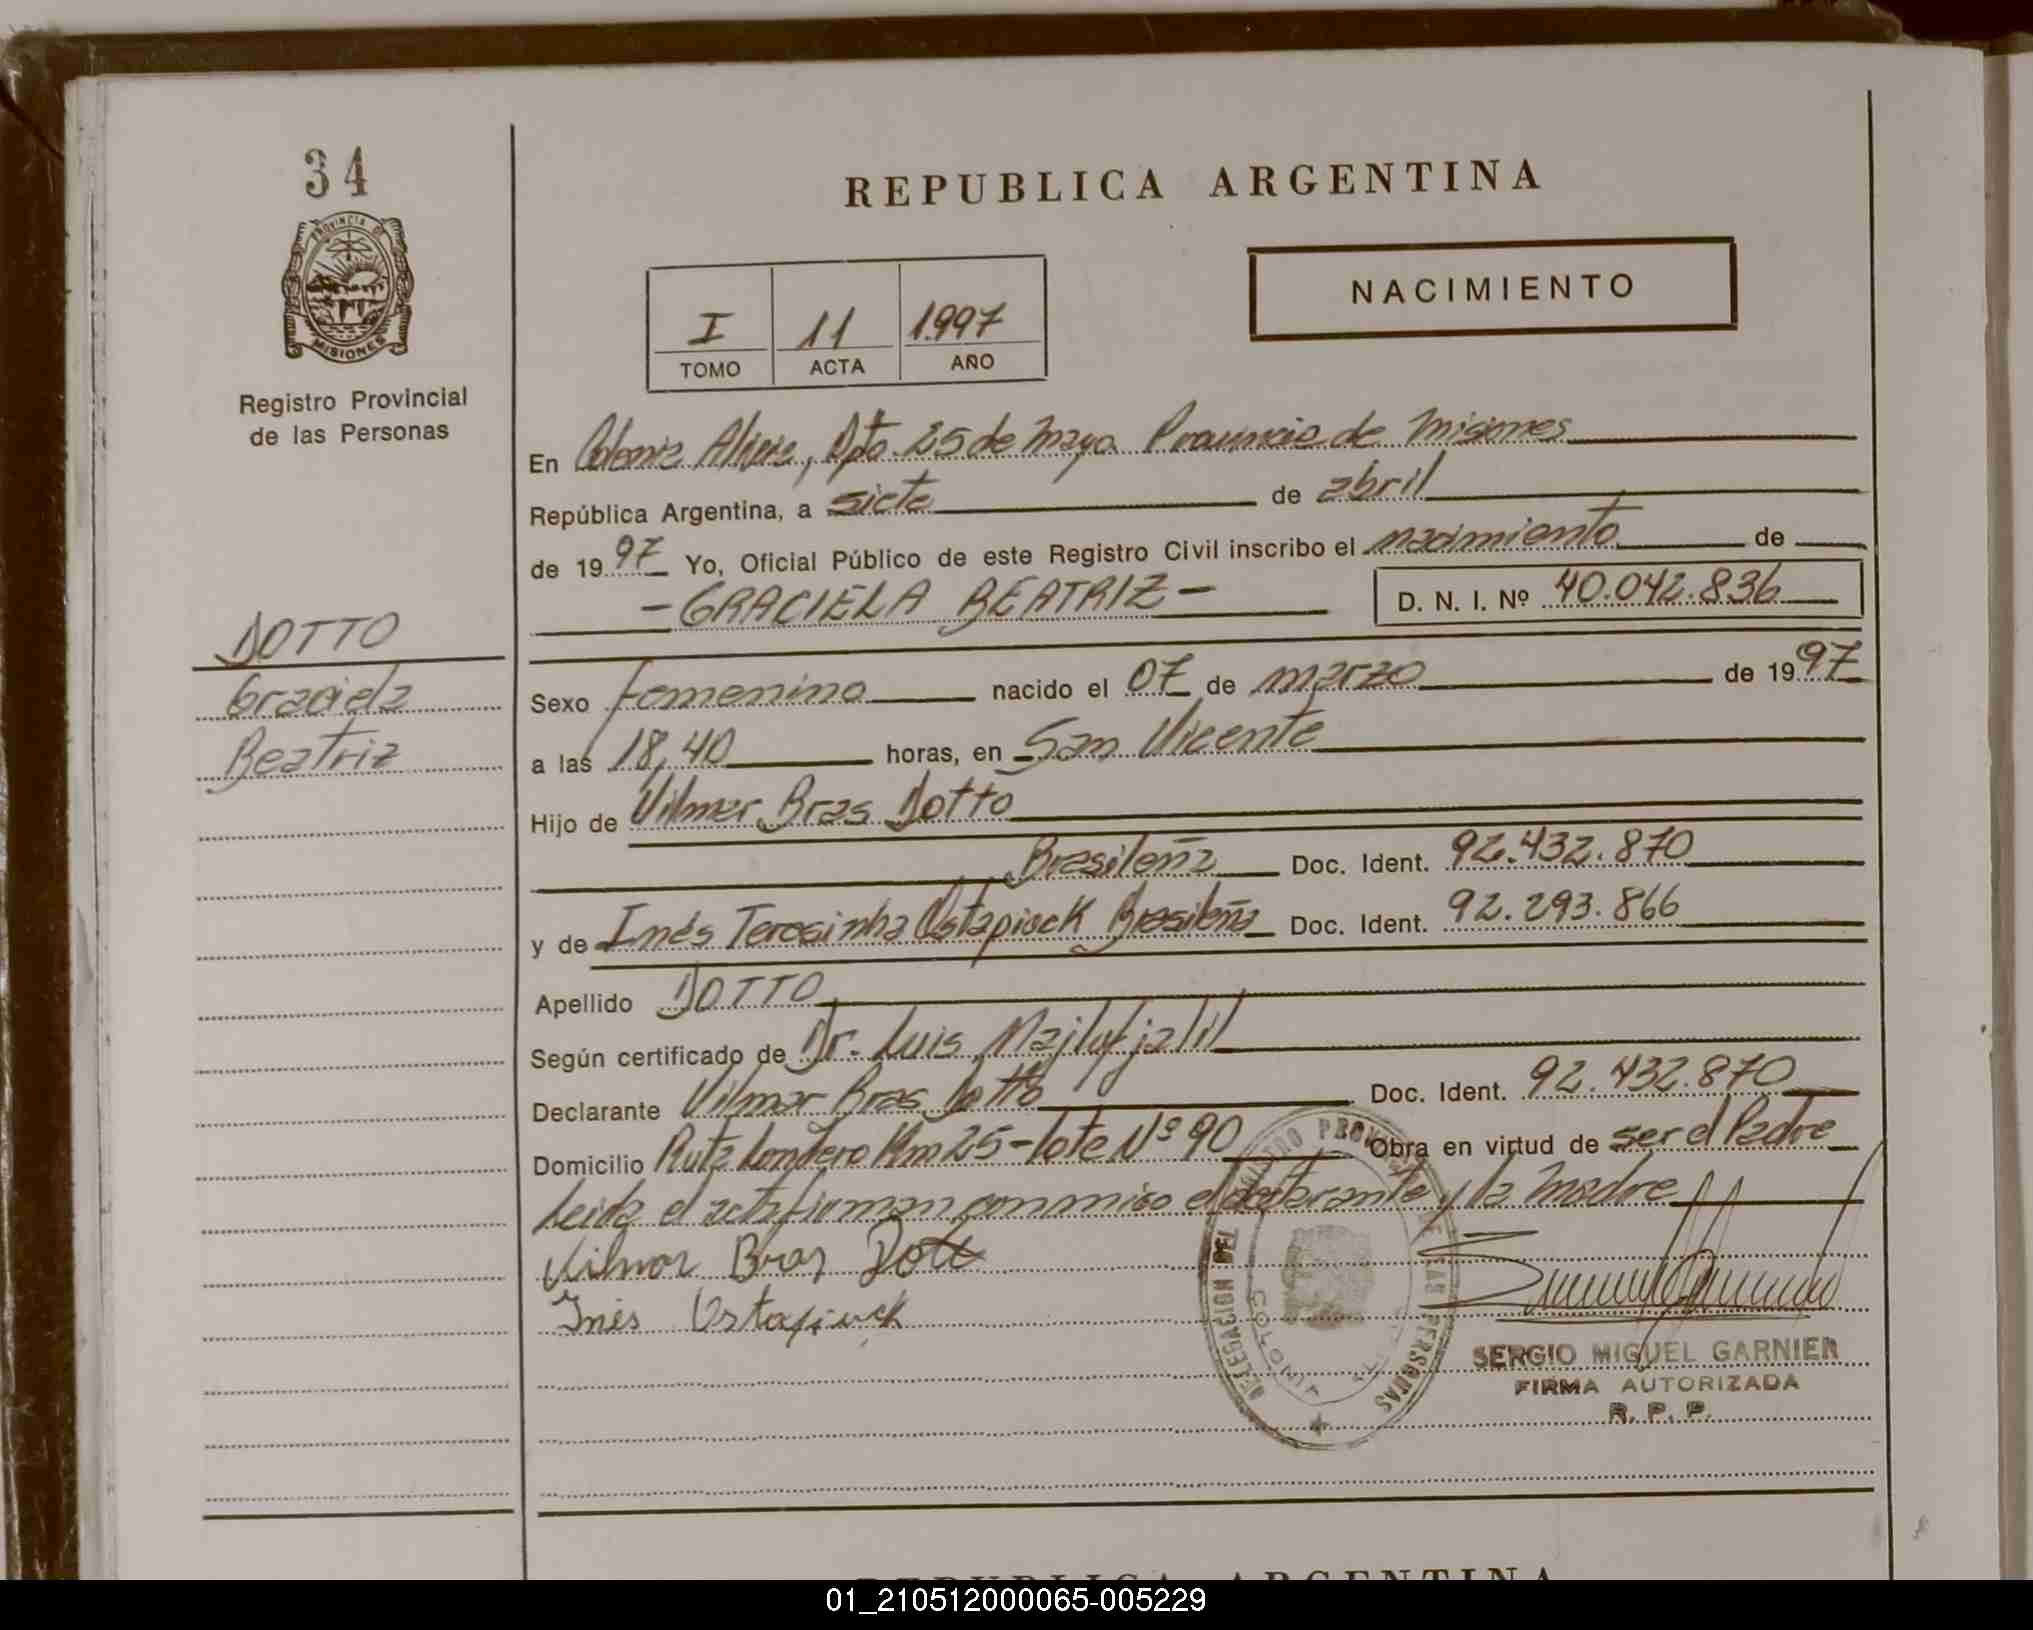 34
PROVINCIA DE
MISIONES
Registro Provincial
de las Personas
DOTTO
Graciela
Beatriz
REPUBLICA ARGENTINA
NACIMIENTO
I 11 1.997
TOMO ACTA AÑO
En Colonia Alicia, Dpto. 25 de Mayo Provincia de Misiones
República Argentina, a siete de abril
de 1997 Yo, Oficial Público de este Registro Civil inscribo el nacimiento de
- GRACIELA BEATRIZ - D. N. I. Nº 40.042.836
Sexo Femenino nacido el 07 de marzo de 1997
a las 18,40 horas, en San Vicente
Hijo de Vilmar Bras Dotto
Brasileña Doc. Ident. 92.432.870
y de Inés Teresinha Ostapiuck Brasileña Doc. Ident. 92.293.866
Apellido DOTTO
Según certificado de Dr. Luis Majluf jalil
Declarante Vilmar Bras Dotto Doc. Ident. 92.432.870
Domicilio Ruta Km 25 - lote Nº 90 Obra en virtud de ser el Padre
Leida el acta firman conmigo el declarante y la Madre
Vilmar Bras Dotto
Inés Ostapiuck
DELEGACION DEL REGISTRO PROVINCIAL DE LAS PERSONAS
COLONIA
SERGIO MIGUEL GARNIER
FIRMA AUTORIZADA
R. P. P.
REPUBLICA ARGENTINA
01_210512000065-005229